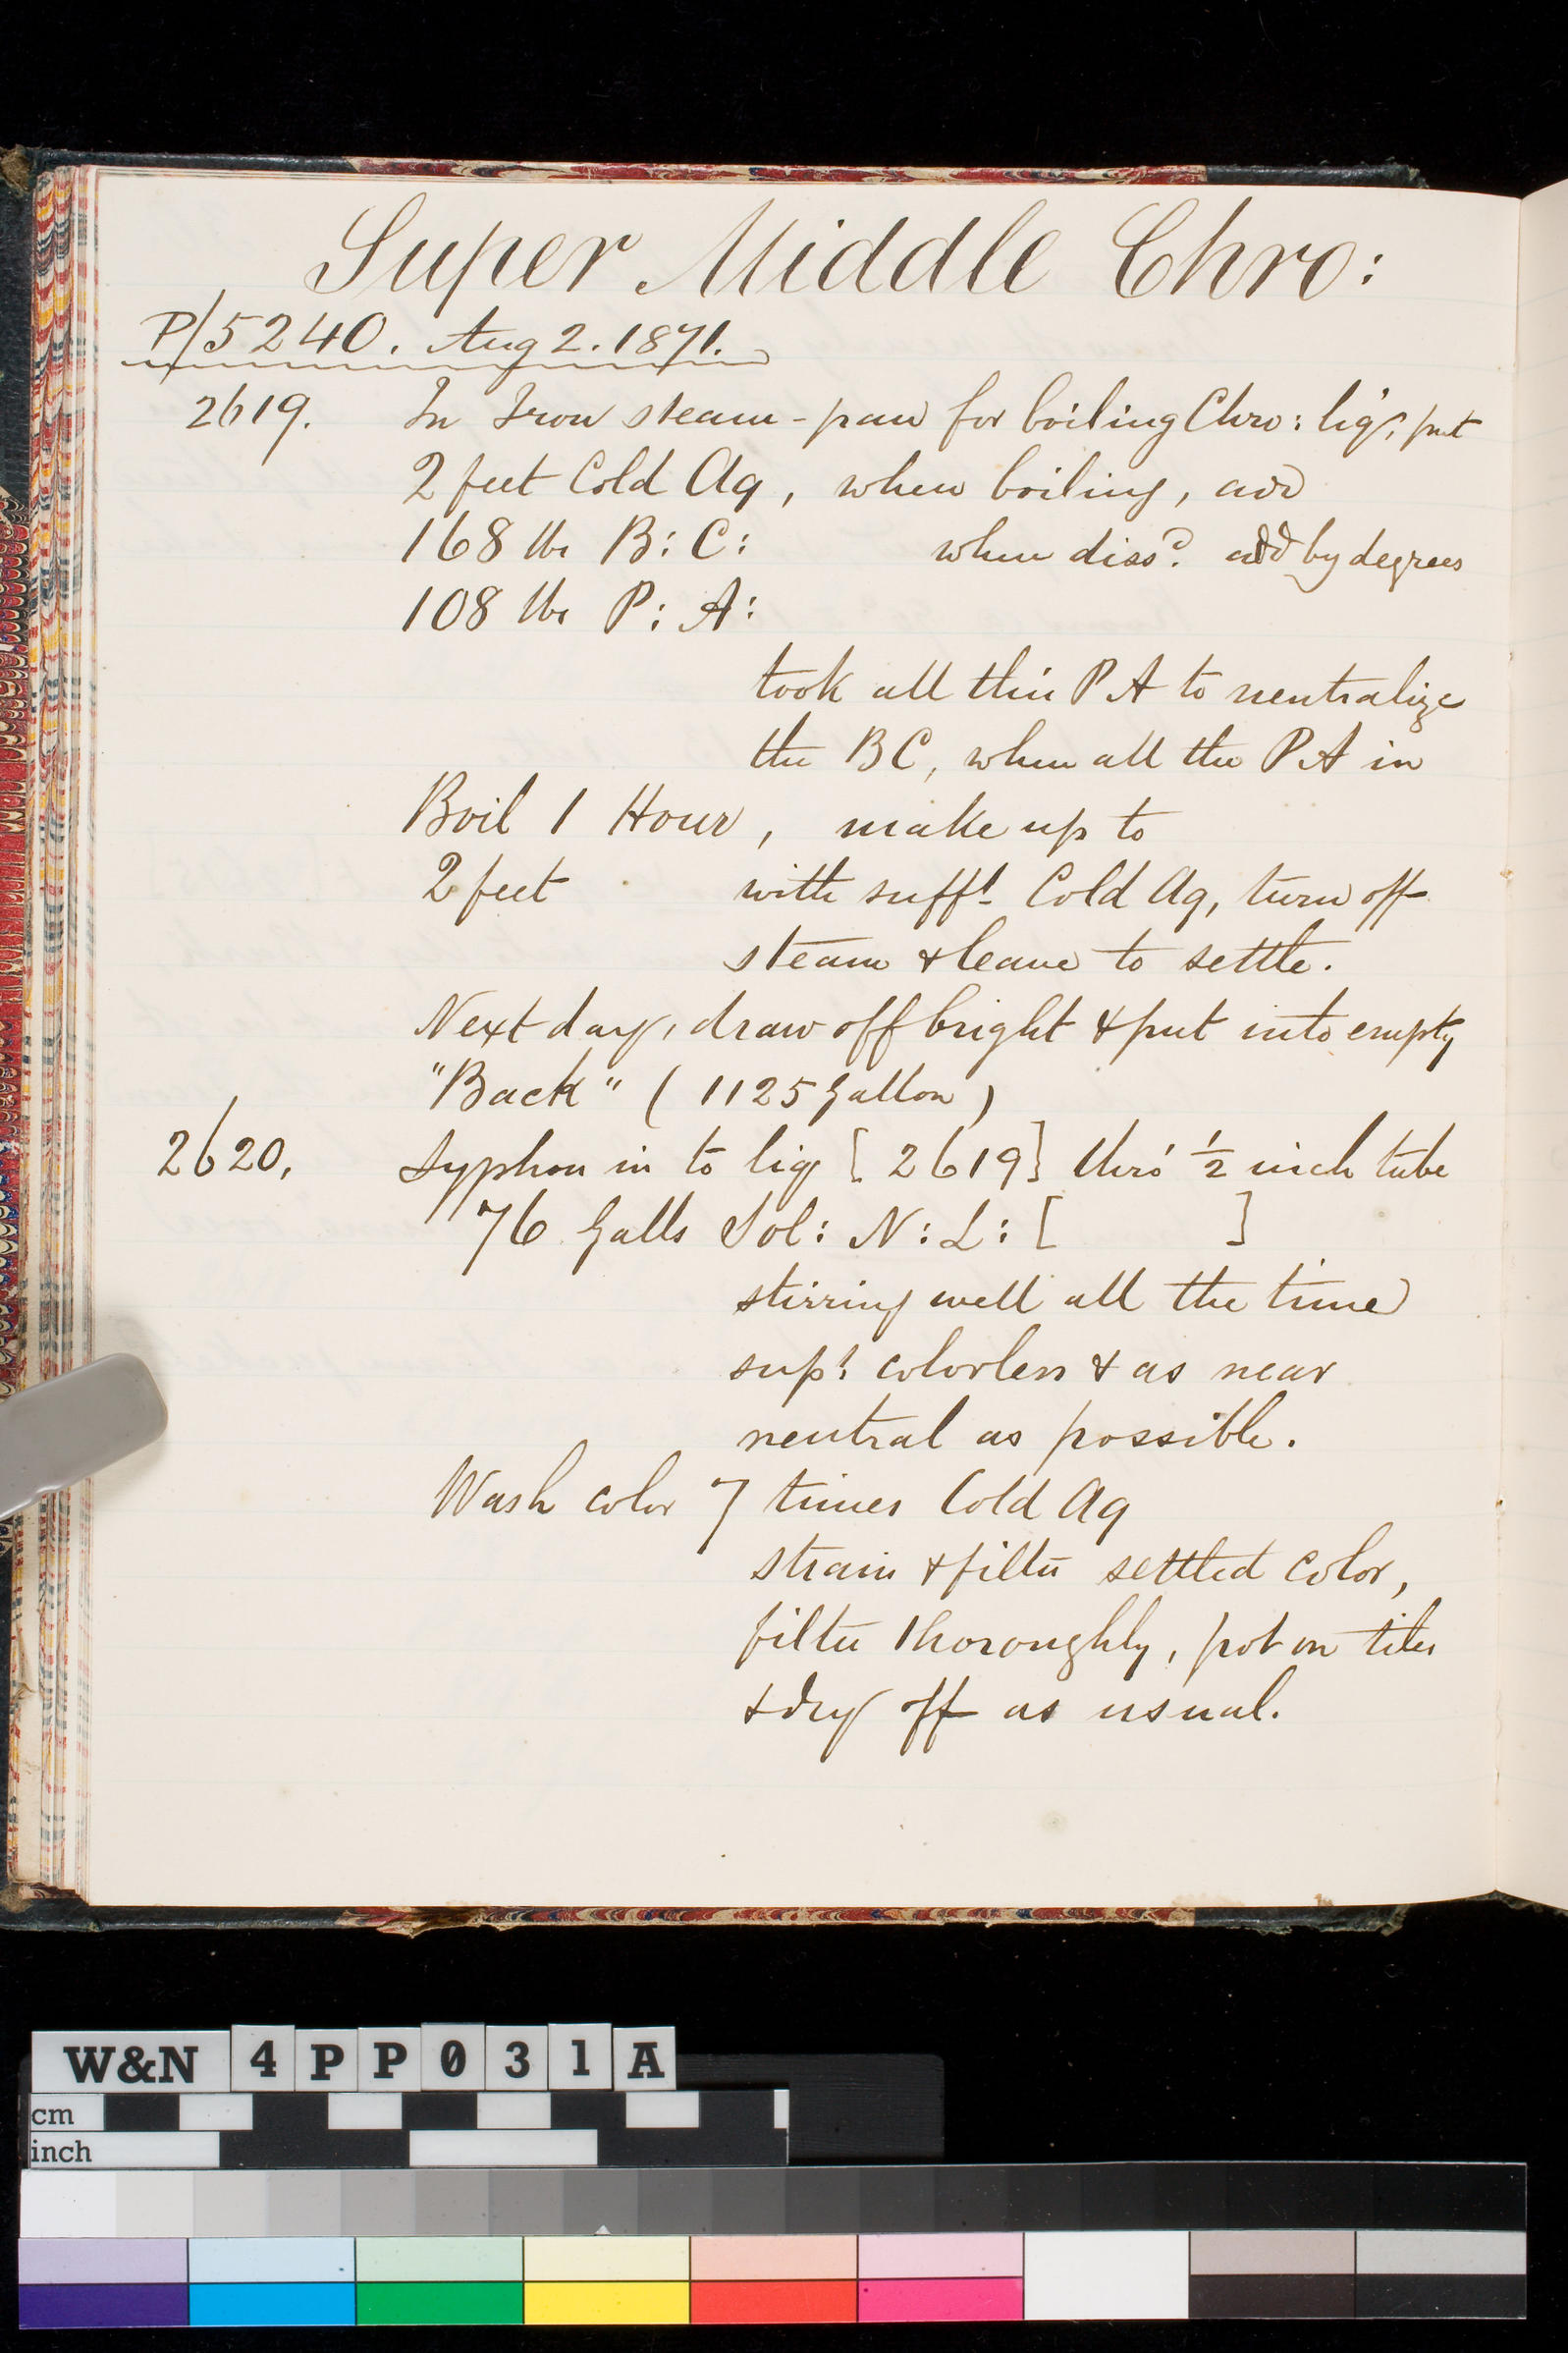 Super Middle Chro:
P/5240. Aug 2. 1871.
2619. In Iron steam-pan for boiling Chro: liq., put
2 feet Cold Aq, when boiling, add
168 lbs B: C: when dissd. add by degrees
108 lbs P: A:
took all this P A to neutralize
the B C, when all the P A in
Boil 1 Hour, make up to
2 feet with sufft. Cold Aq, turn off
steam & leave to settle.
Next day, draw off bright & put into empty
"Back" (1125 Gallon)
2620. Syphon in to liq [2619] thro' ½ inch tube
76 Galls Sol: N: L: [ ]
stirring well all the time
supt. colorless & as near
neutral as possible.
Wash color 7 times Cold Aq
strain & filter settled color,
filter thoroughly, pot on tiles
& dry off as usual.
W&N 4PP031A
cm
inch